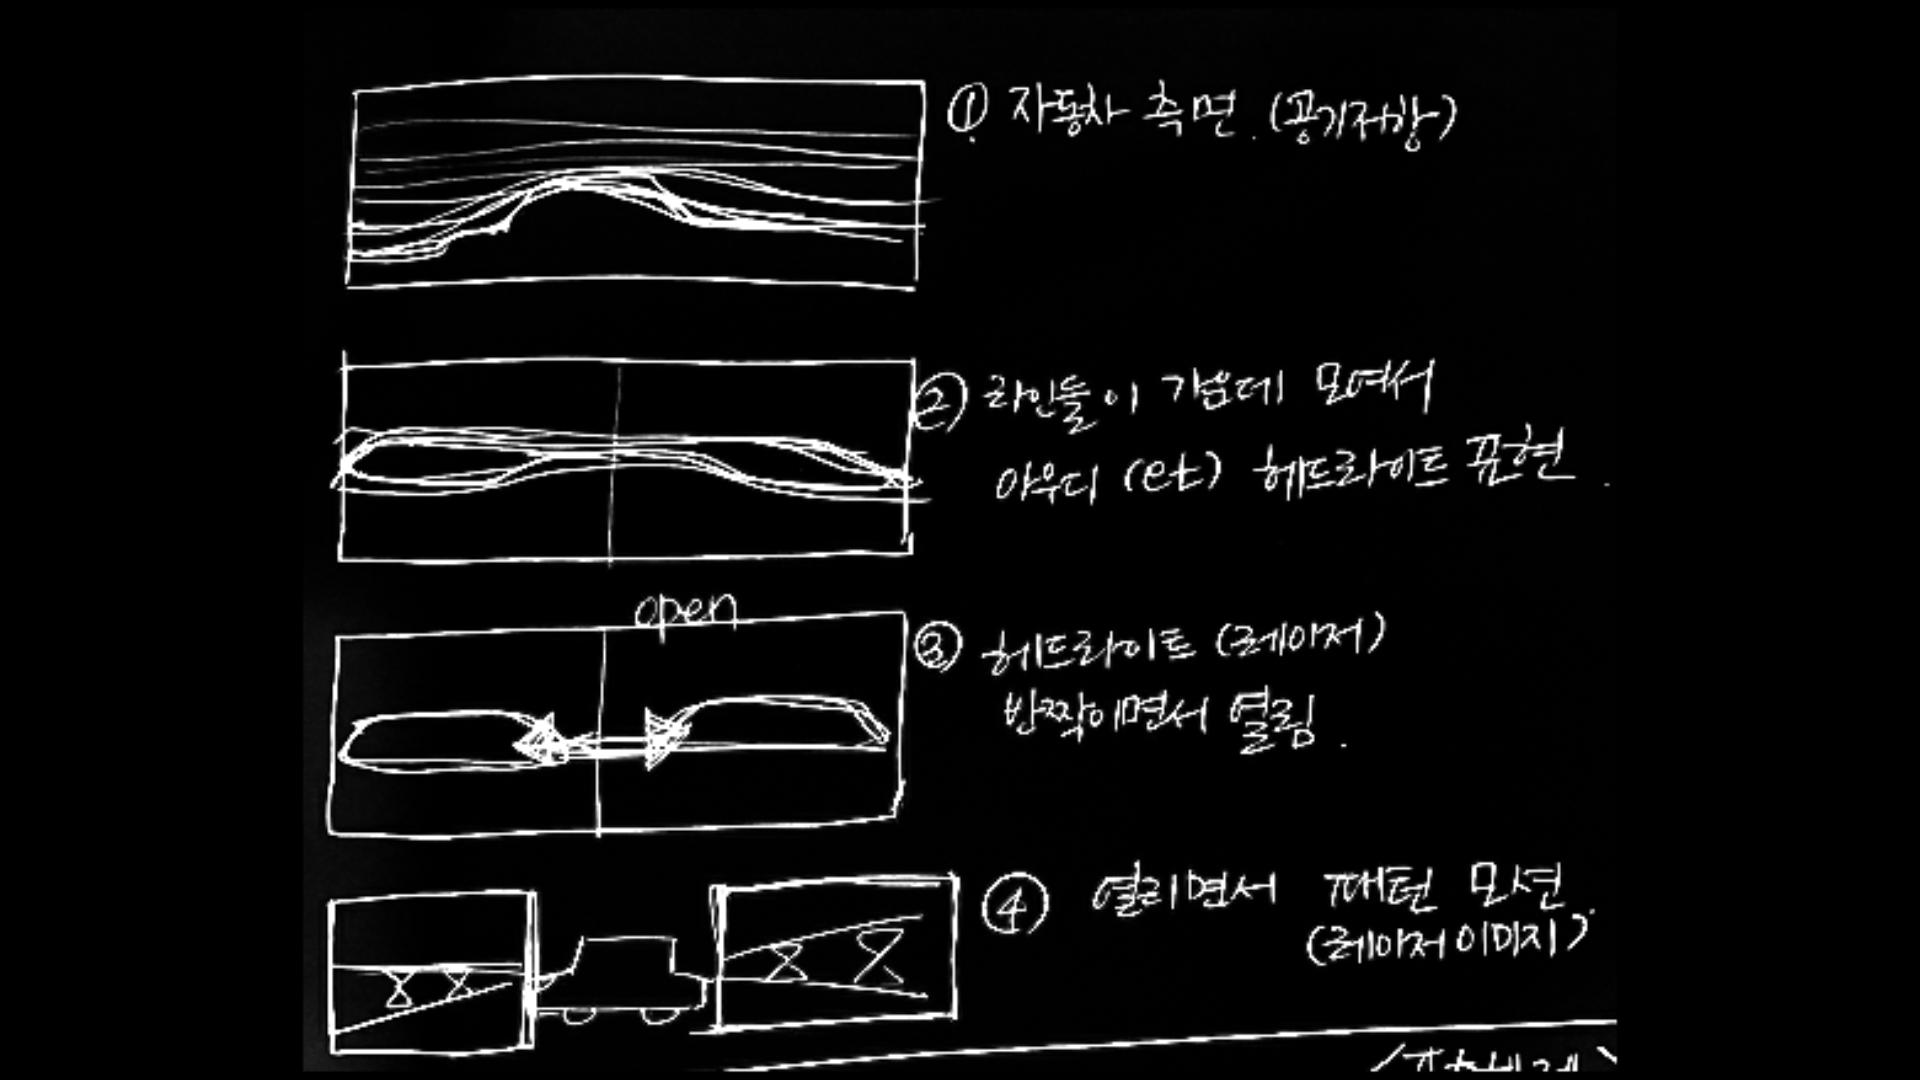 ① 자동차 측면. (공기저항)
② 라인들이 가운데 모여서
아우디 (et) 헤드라이트 표현.
open
③ 헤드라이트 (레이저)
반짝이면서 열림.
④ 열리면서 패턴 모션.
(레이저 이미지)